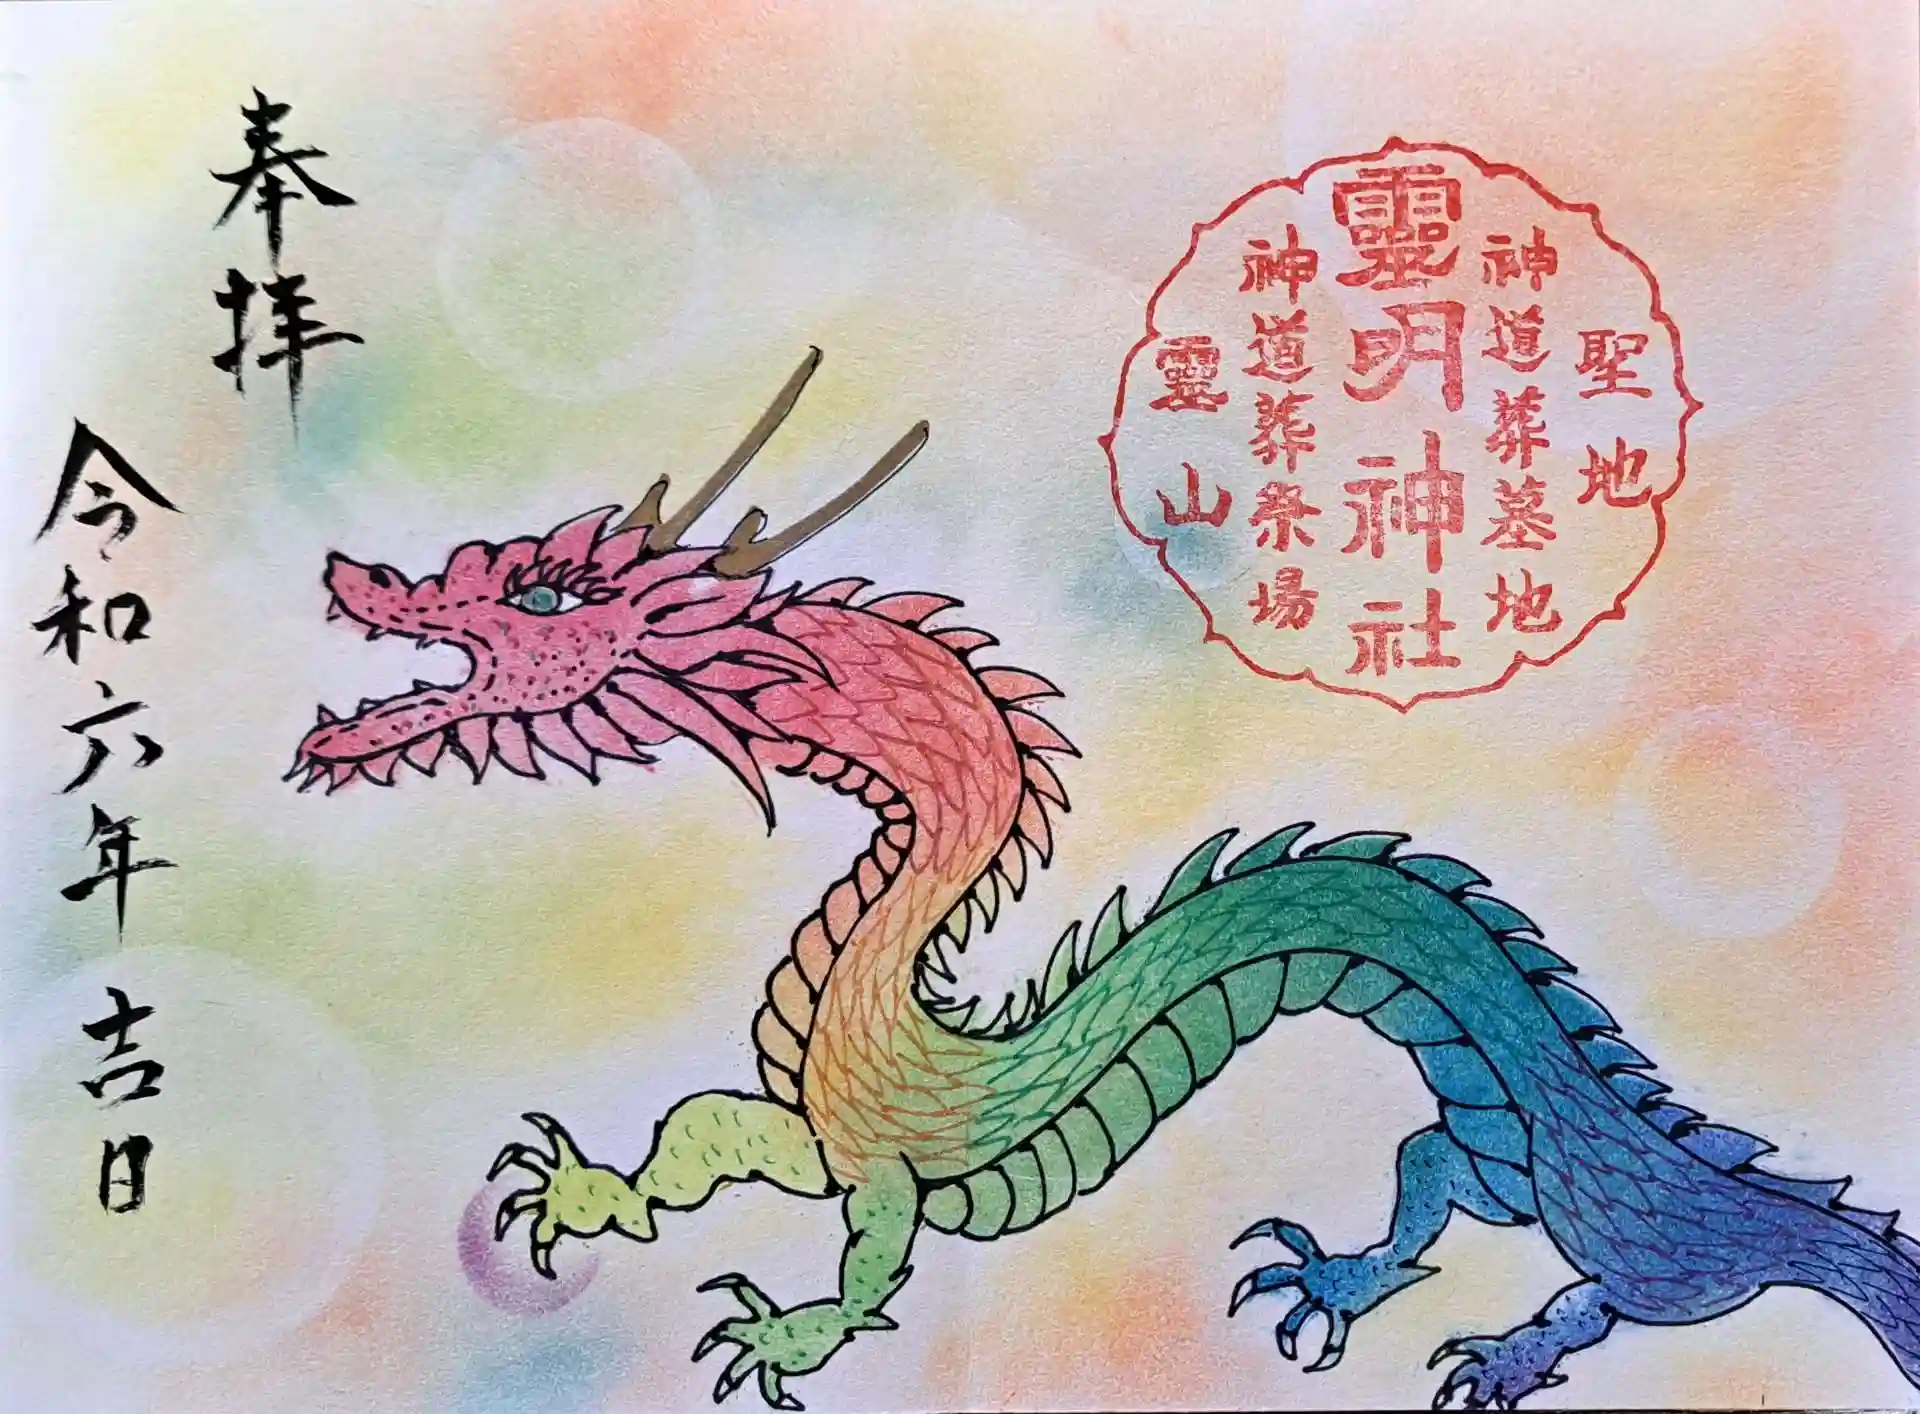 聖地
神道葬墓地
靈明神社
神道葬祭場
靈山
奉拝
令和六年吉日